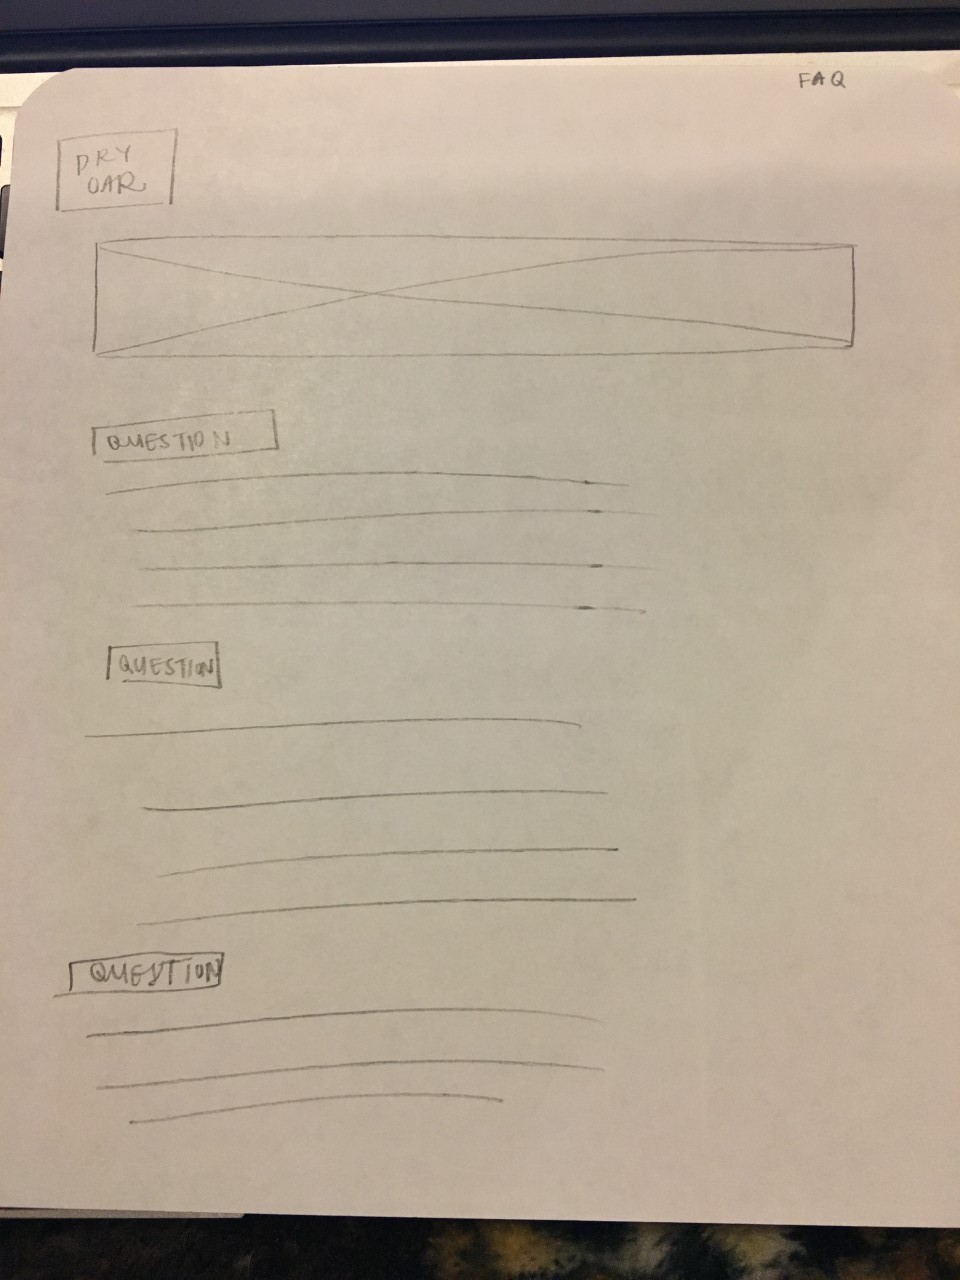 FAQ
DRY
OAR
QUESTION
QUESTION
QUESTION